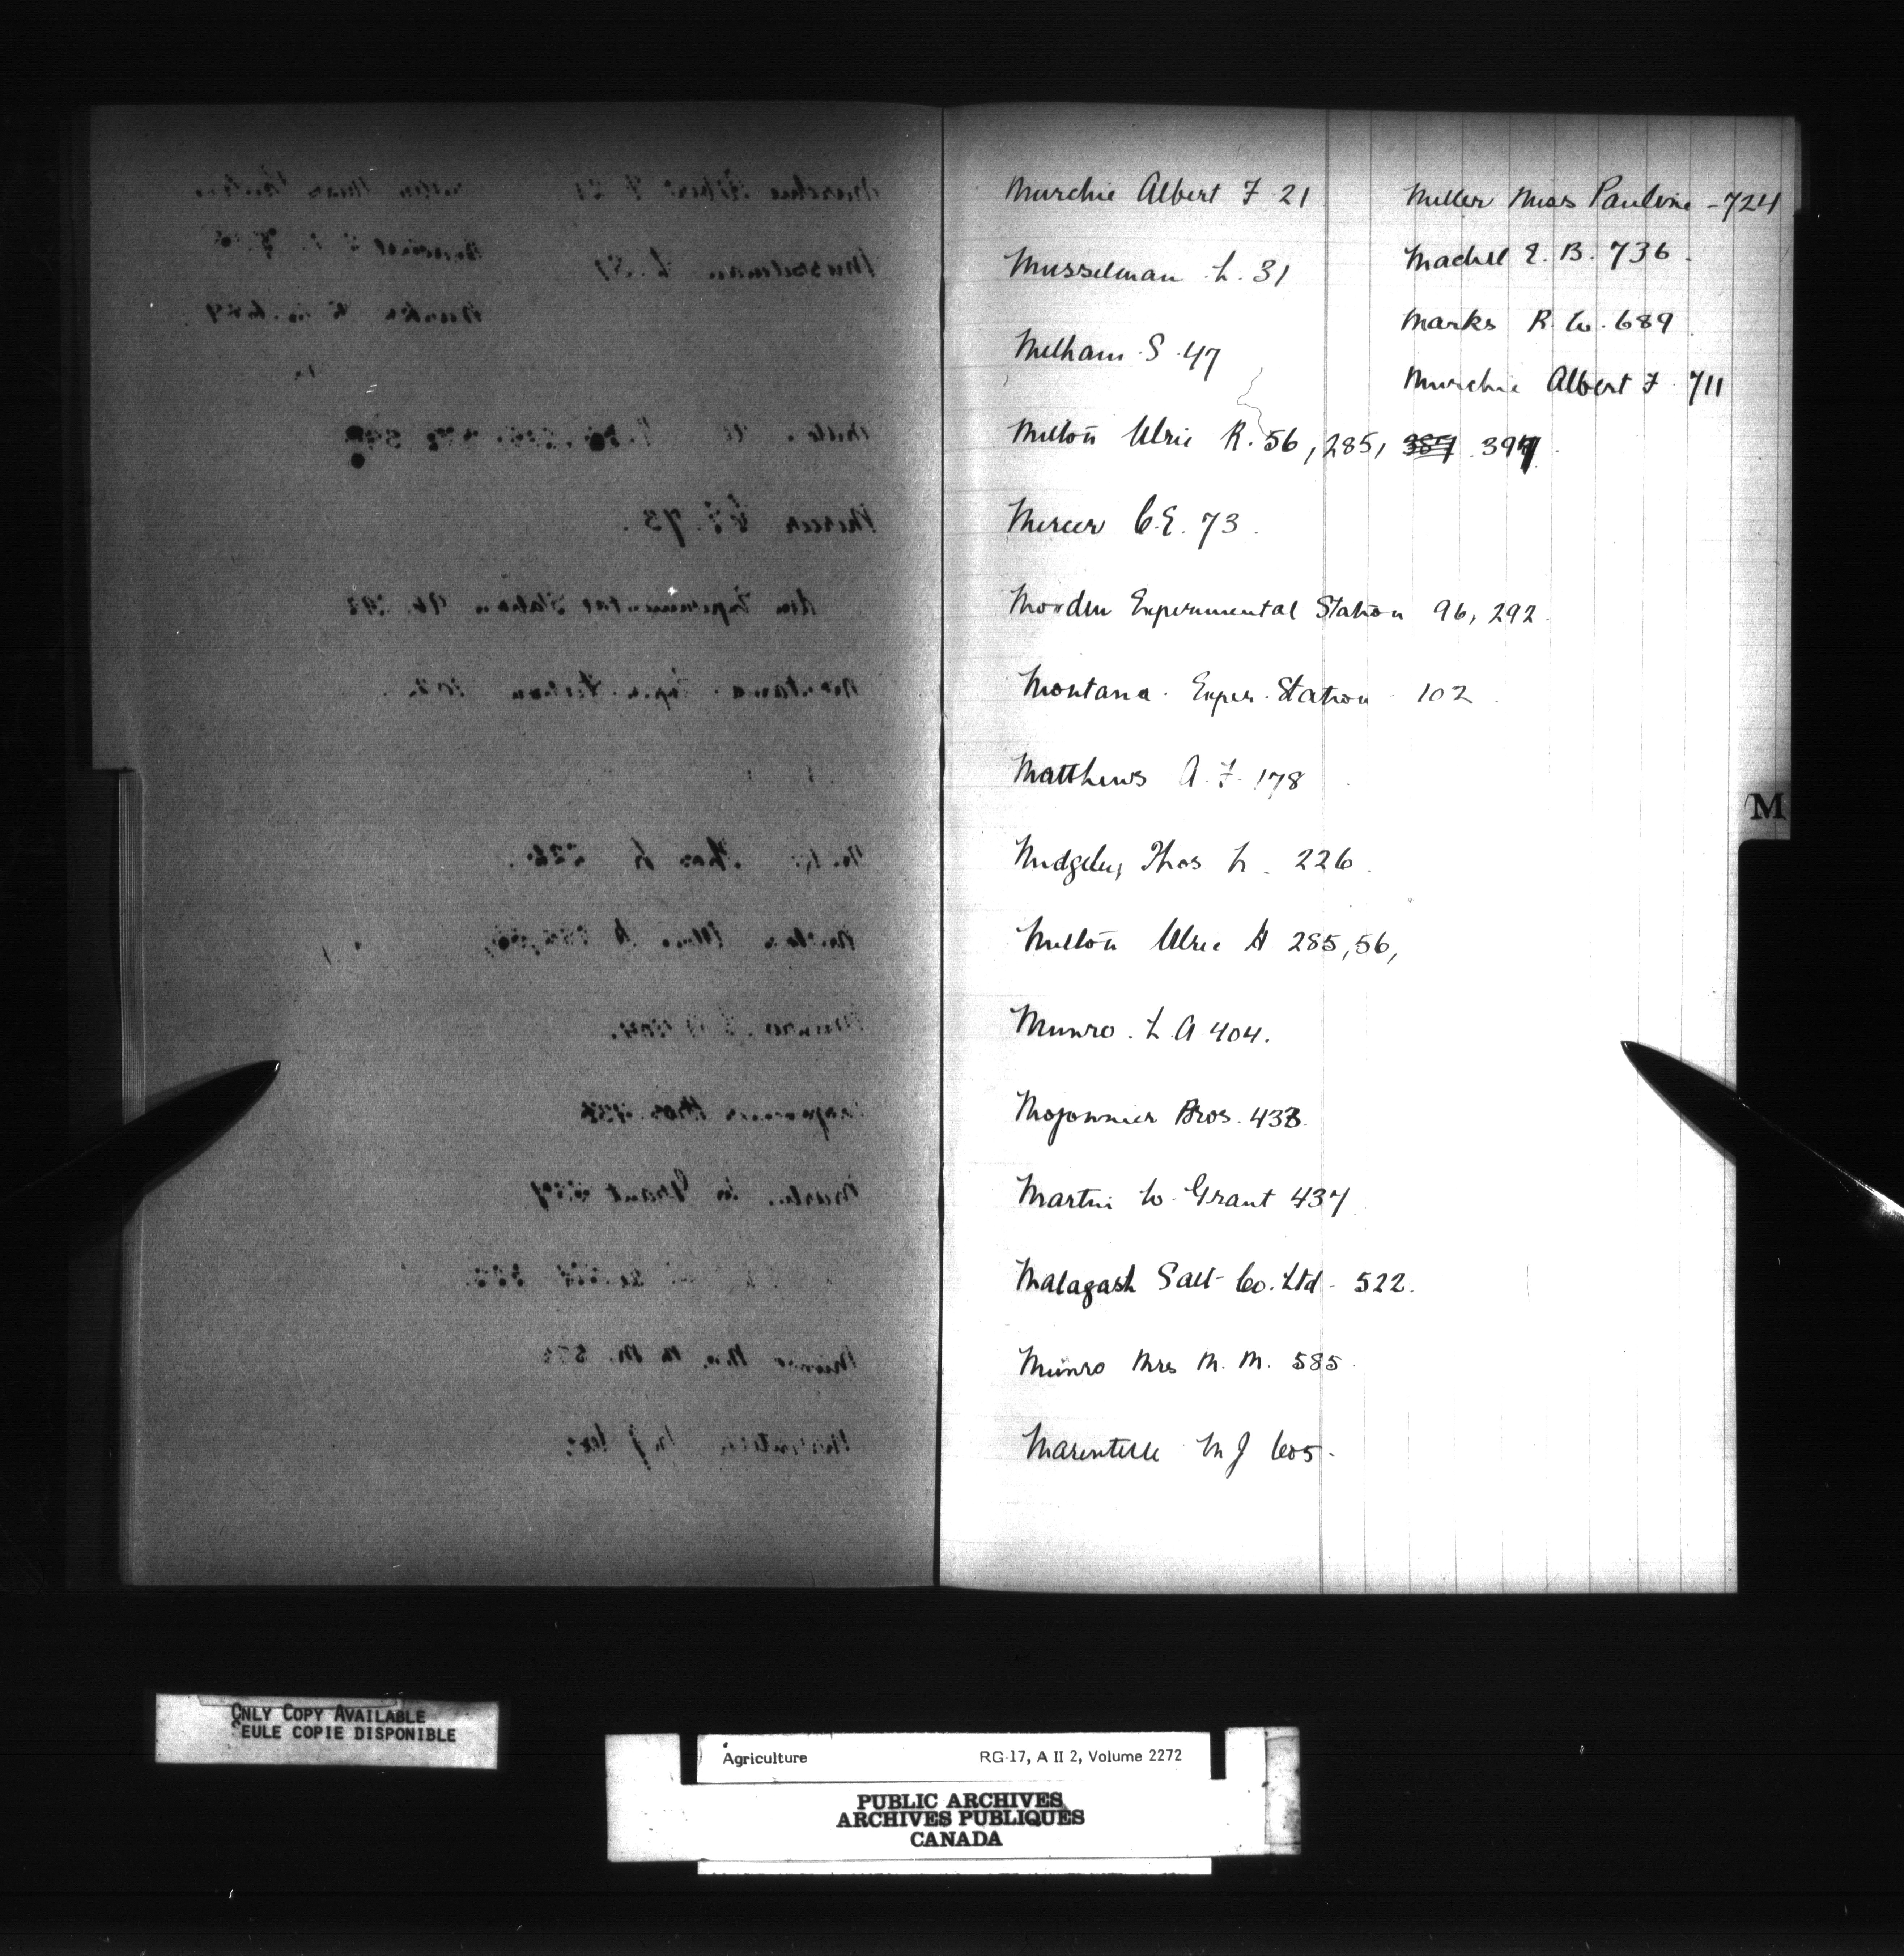 Murchie Albert F 21
Musselman L. 31
Melham S. 47
Milton Ulric R. 56, 285, 387 397
Mercer C.E. 73.
Morden Experimental Station 96, 292
Montana Exper. Station 102
Matthews A. F. 178
Midgley, Thos L. 226.
Milton Ulric A 285, 56,
Munro. L. A 404.
Mojonnier Bros. 433
Martin W. Grant 437
Malagash Salt Co. Ltd - 522.
Munro Mrs M. M. 585
Marentette M J 605.
Miller Miss Pauline - 724
E. B. 736.
Marks R. W. 689
Murchie Albert F. 711
M
ONLY COPY AVAILABLE
SEULE COPIE DISPONIBLE
Agriculture RG-17, A II 2, Volume 2272
PUBLIC ARCHIVES
ARCHIVES PUBLIQUES
CANADA